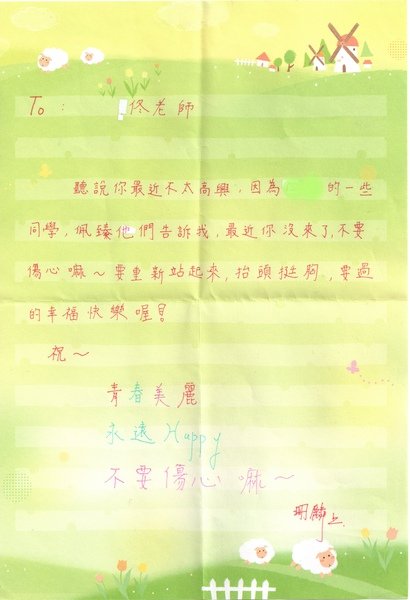 To：佟老師
聽說你最近不太高興，因為 的一些
同學，佩臻他們告訴我，最近你沒來了，不要
傷心嘛～要重新站起來，抬頭挺胸，要過
的幸福快樂喔！
祝～
青春美麗
永遠Happy
不要傷心嘛～
珊麟上